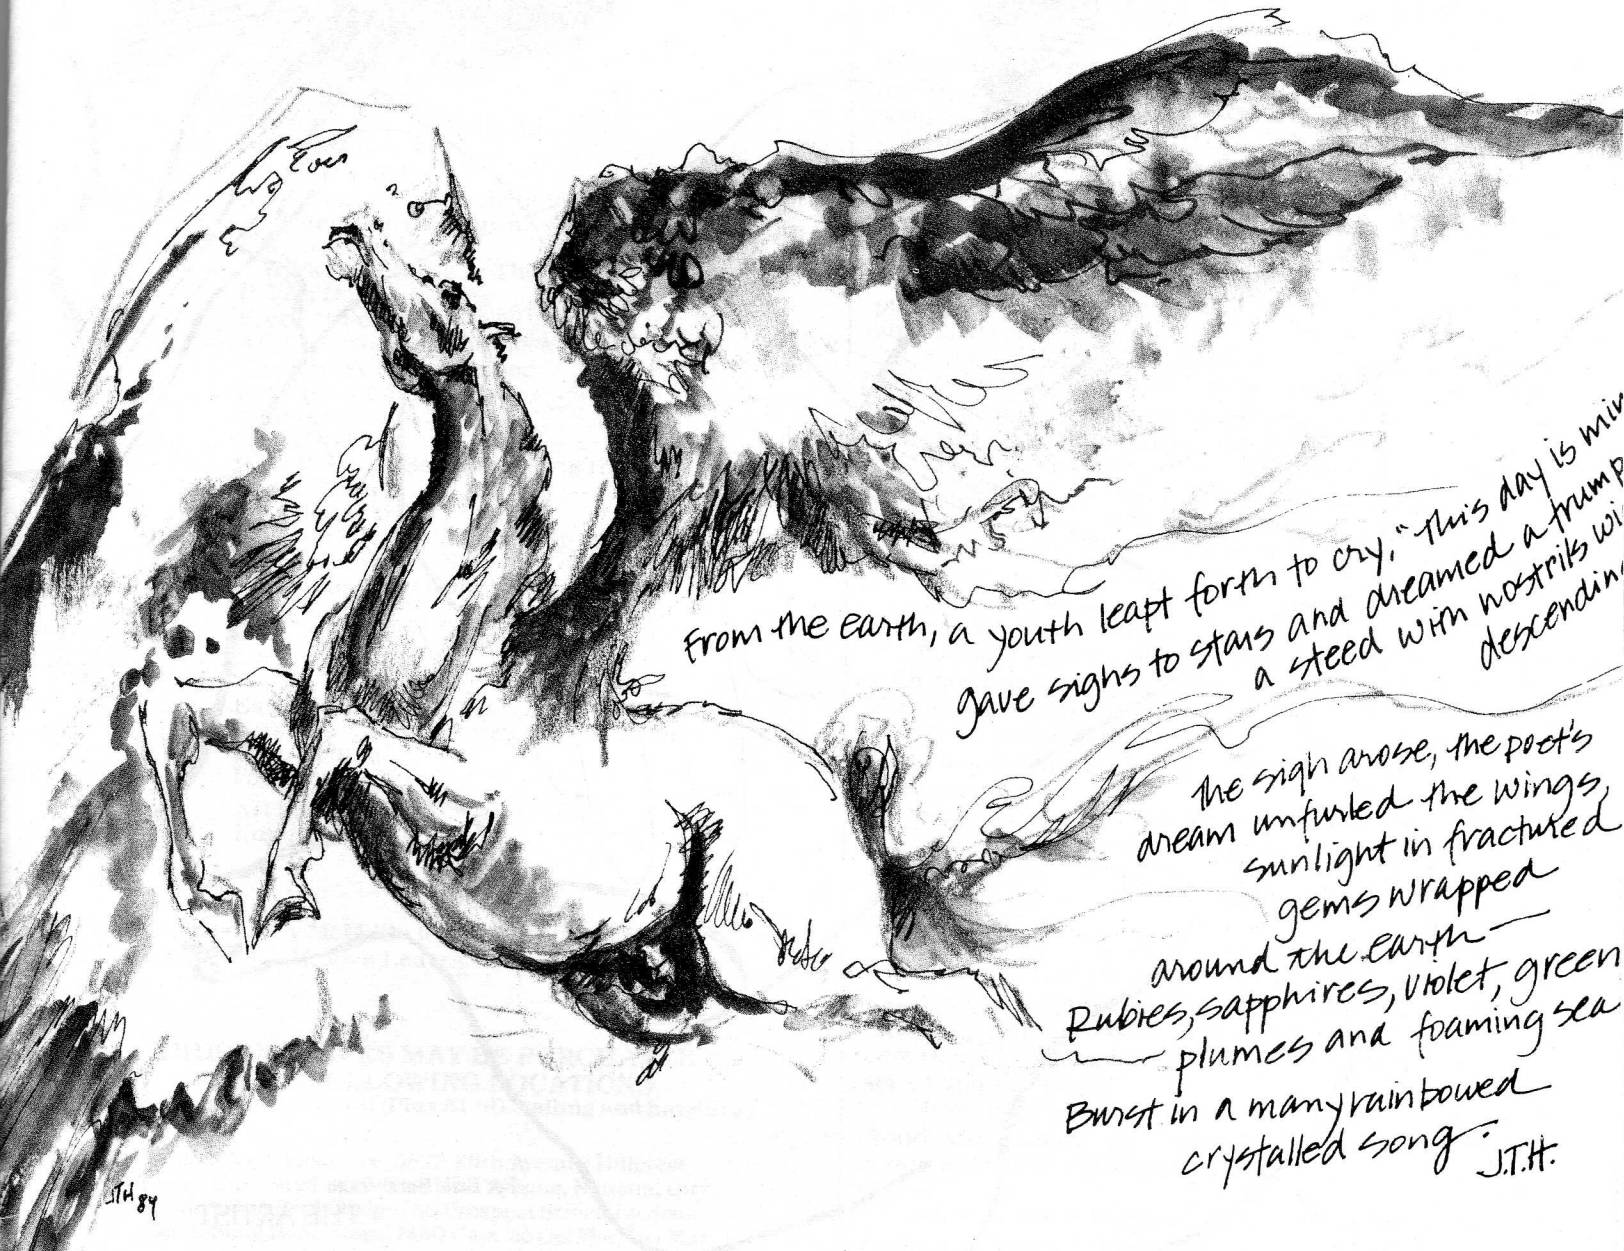 From the earth, a youth leapt forth to cry, "This day is min
gave sighs to stars and dreamed a trump
a steed with nostrils wi
descending
The sigh arose, the poet's
dream unfurled the wings,
sunlight in fractured
gems wrapped
around the earth —
Rubies, sapphires, violet, green
plumes and foaming sea
Burst in a manyrainbowed
crystalled song.
J.T.H.
JTH 84